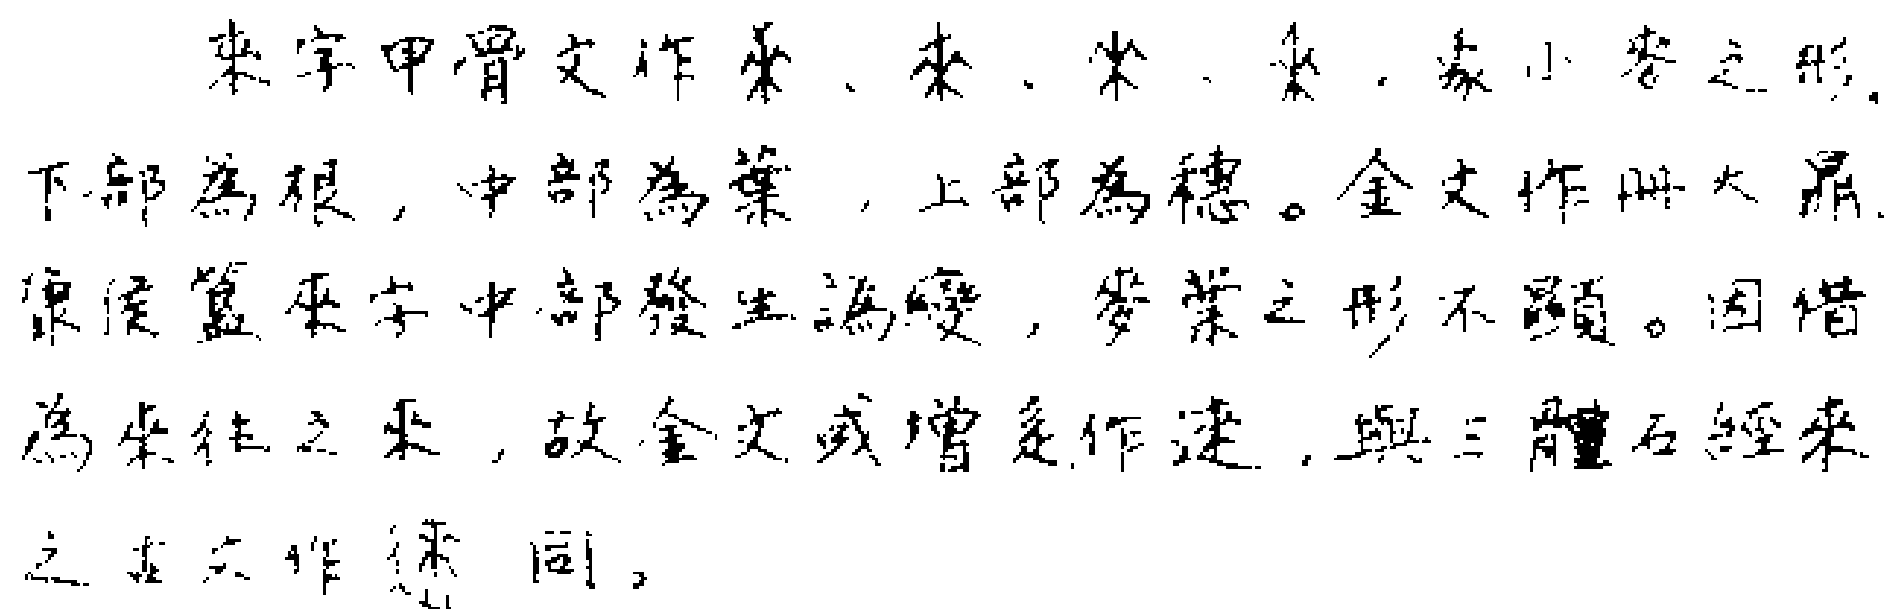 來字甲骨文作來、來、來、來,象小麥之形,
下部為根,中部為葉,上部為穗。金文作冊大鼎、
侯簋來字中部發生譌變,麥葉之形不顯。因借
為來往之來,故金文或增辵作逨,與三體石經來
之古文作逨同。